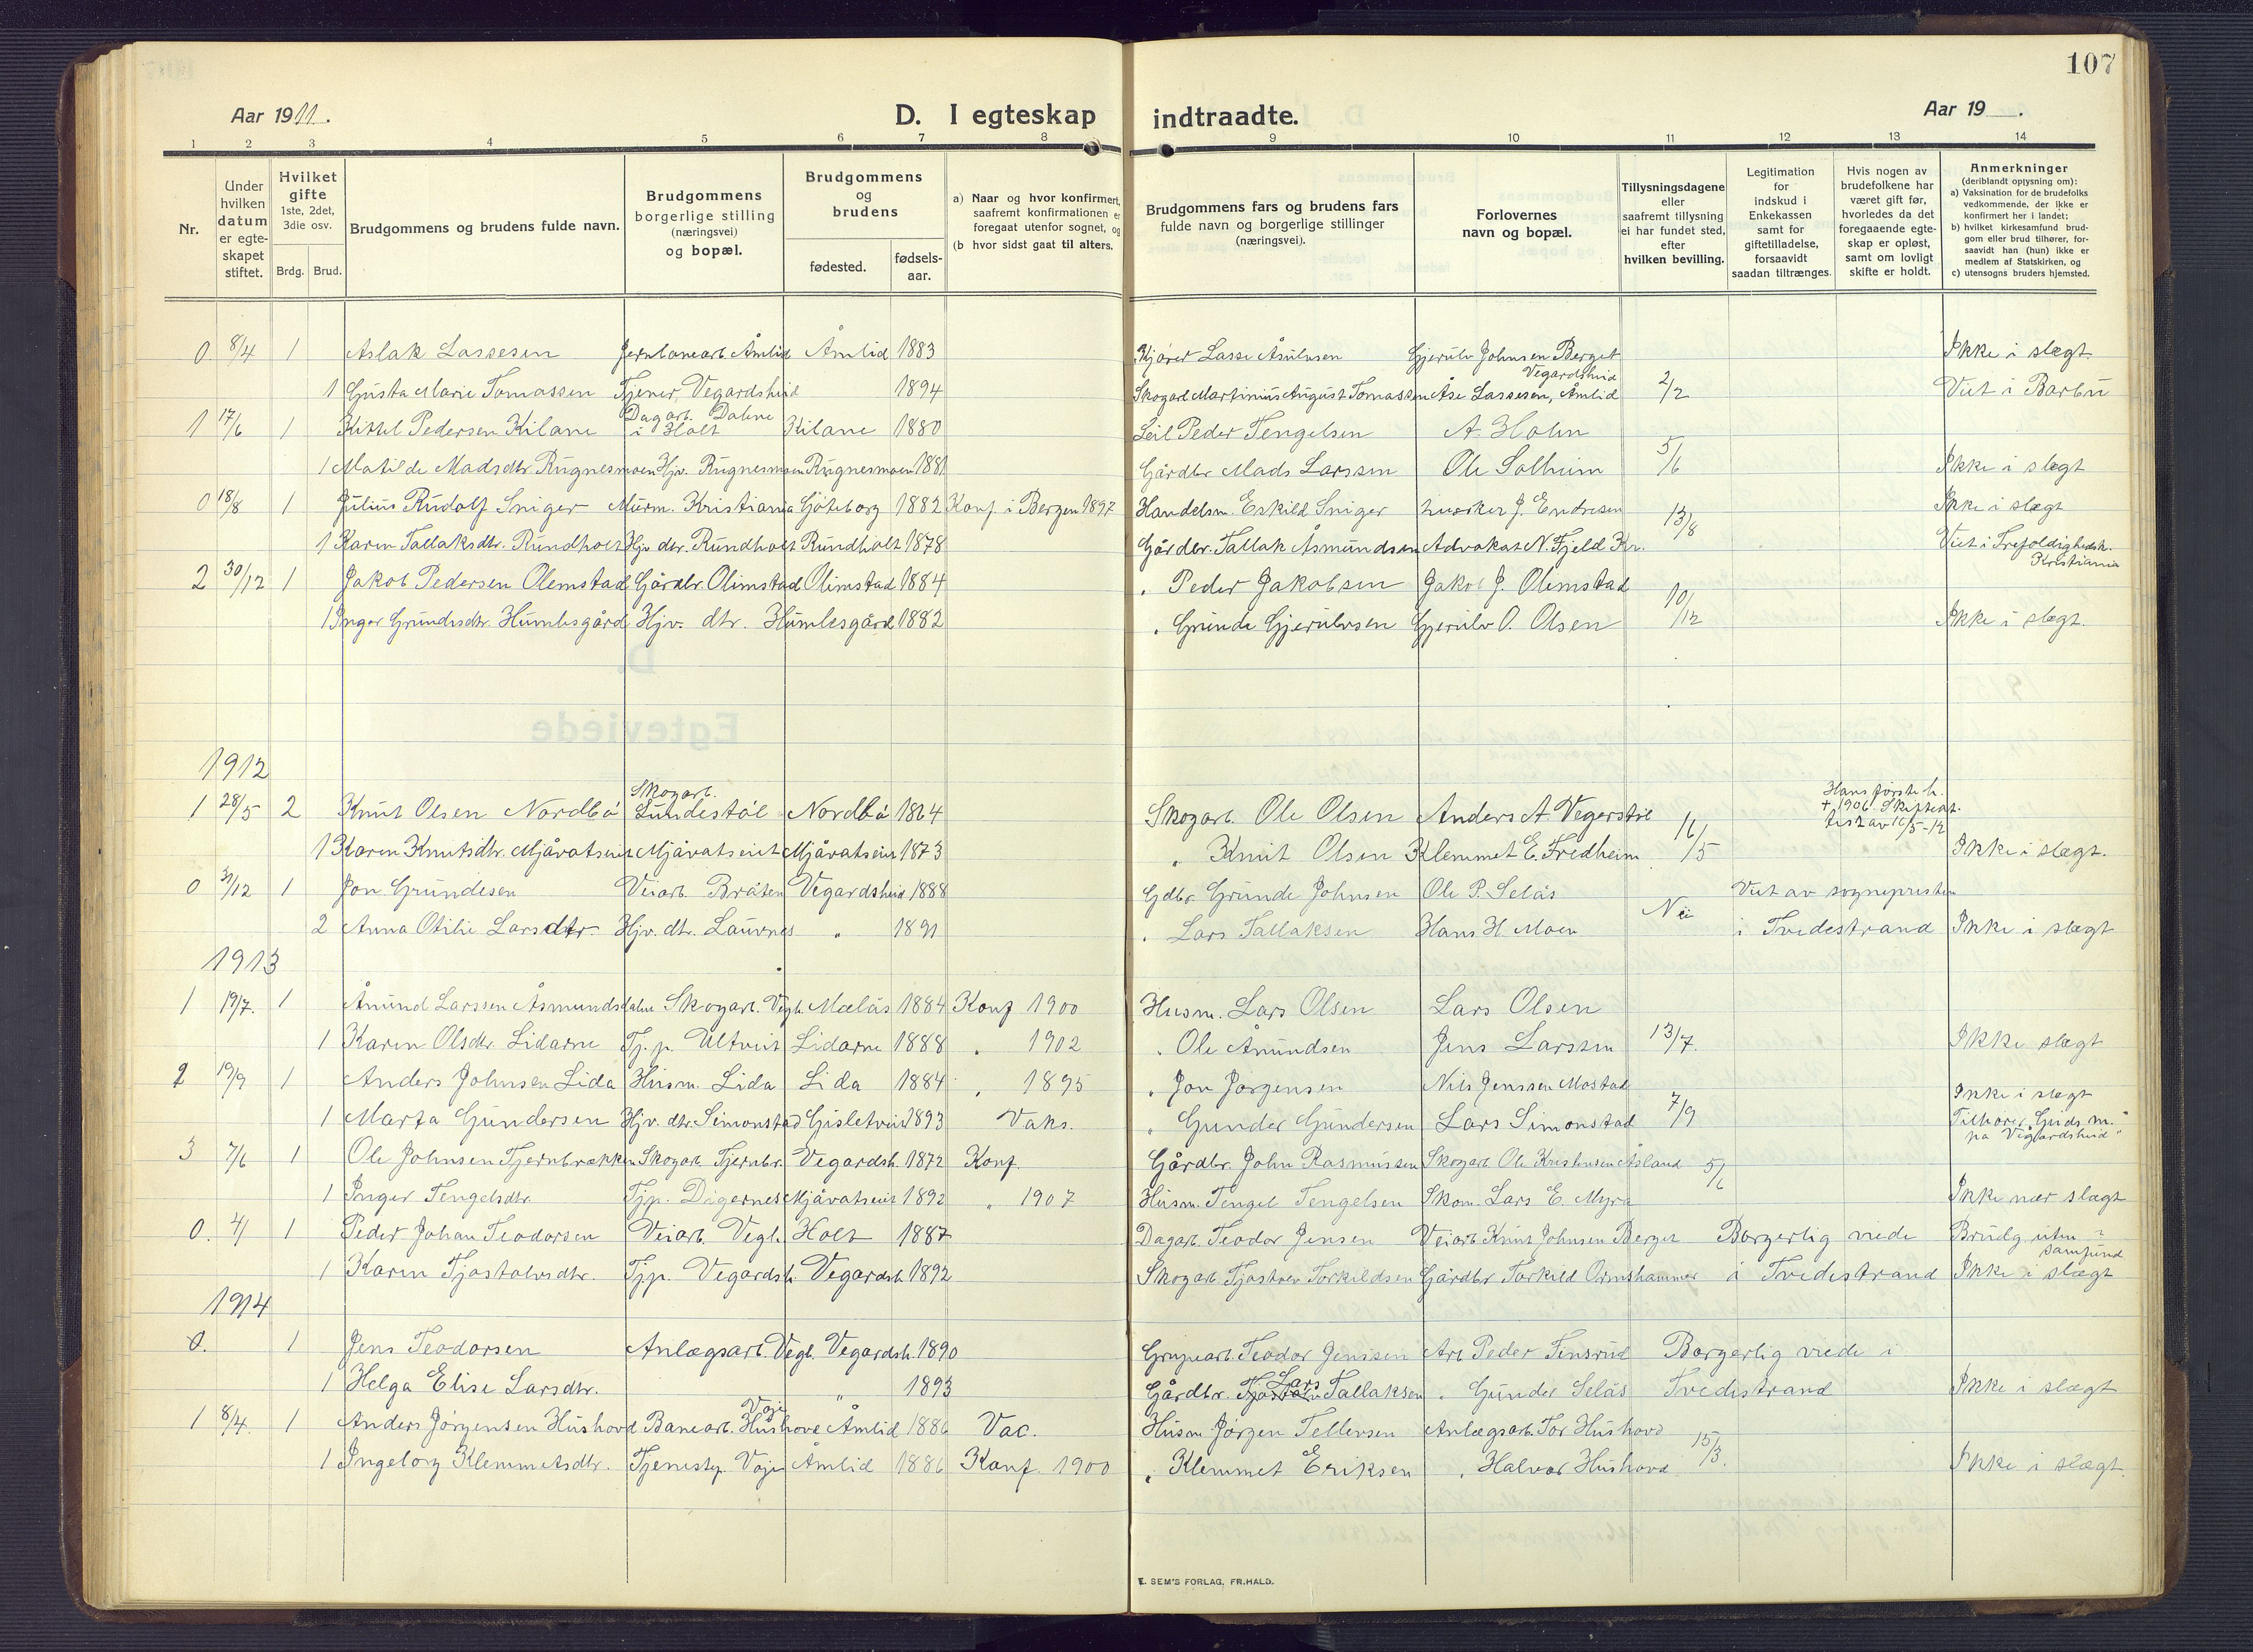 107
Aar 1911.
D. I egteskap indtraadte.
Aar 19 .
1 2 3 4 5 6 7 8 9 10 11 12 13 14
Nr.
Under hvilken datum er egteskapet stiftet.
Hvilket gifte 1ste, 2det, 3die osv.
Brdg. Brud.
Brudgommens og brudens fulde navn.
Brudgommens borgerlige stilling (næringsvei) og bopæl.
Brudgommens og brudens
fødested.
fødsels-aar.
a) Naar og hvor konfirmert, saafremt konfirmationen er foregaat utenfor sognet, og
(b hvor sidst gaat til alters.
Brudgommens fars og brudens fars fulde navn og borgerlige stillinger (næringsvei).
Forlovernes navn og bopæl.
Tillysningsdagene eller saafremt tillysning ei har fundet sted, efter hvilken bevilling.
Legitimation for indskud i Enkekassen samt for giftetilladelse, forsaavidt saadan tiltrænges.
Hvis nogen av brudefolkene har været gift før, hvorledes da det foregaaende egteskap er opløst, samt om lovligt skifte er holdt.
Anmerkninger (deriblandt opiysning om):
a) Vaksination for de brudefolks vedkommende, der ikke er konfirmert her i landet;
b) hvilket kirkesamfund brudgom eller brud tilhører, forsaavidt han (hun) ikke er medlem af Statskirken, og
c) utensogns bruders hjemsted.
0. 8/4 1 Aslak Lassesen Jernbanearb. Åmlid Åmlid 1883 Kjører Lasse Åsulvsen Gjerulv Johnsen Berget Vegardsheid Ikke i slægt.
1 Gusta Marie Tomassen Tjener, Vegardsheid 1894 Skogarb Martinius August Tomassen Åse Lassesen, Åmlid 2/2 Viet i Barbu
1 17/6 1 Kittel Pedersen Kilane Dagarb. Dalene i Holt Kilane 1880 Leil Peder Tengelsen A. Holm
1 Matilde Madsdtr. Rugnesmoen Hjv. Rugnesmoen Rugnesmoen 1881 Gårdbr Mads Larssen Ole Solheim 5/6 Ikke i slægt
0 18/8 1 Julius Rudolf Sniger Murm. Kristiania Göteborg 1882 Konf. i Bergen 1897 Handelsm. Eskild Sniger J. Endresen Ikke i slægt
1 Karen Tallaksdtr. Rundholt Hjv dtr. Rundholt Rundholt 1878 Gårdbr. Tallak Åsmundsen Advokat N. Fjeld Kr. 13/8 Viet i Trefoldighedsk. Kristiania
2 30/12 1 Jakob Pedersen Olemstad Gårdbr. Olimstad Olimstad 1884 " Peder Jakobsen Jakob J. Olimstad
1 Inger Grundesdtr. Humlesgård Hjv. dtr. Humlesgård 1882 " Grunde Gjerulvsen Gjerulv O. Olsen 10/12 Ikke i slægt.
1912
1 28/5 2 Knut Olsen Nordbø Skogarb. Lundestøl Nordbø 1864 Skogarb. Ole Olsen Anders A. Vegerstøl Hans første h. + 1906.
1 Karen Knutsdtr. Mjåvatseiet Mjåvatseiet Mjåvatseiet 1873 " Knut Olsen Klemmet E. Fredheim 16/5 Ikke i slægt.
0 31/12 1 Jon Grundesen Veiarb. Bråten Vegardsheid 1888 Gdbr. Grunde Johnsen Ole P. Selås Viet av sognepresten
2 Anna Otilie Larsdtr. Hjv. dtr. Lauvnes " 1891 " Lars Tallaksen Hans H. Moen Nei i Tvedestrand Ikke i slægt
1913
1 19/7. 1 Ånund Larssen Åsmundsdalen Skogarb. Vegh. Mælås 1884 Konf 1900 Husm. Lars Olsen Lars Olsen
1 Karen Olsdtr. Lidarne Tj. p. Ultveit Lidarne 1888 " 1902 " Ole Ånundsen Jens Larssen 13/7. Ikke slægt
2 19/9 1 Anders Johnsen Lida Husm. Lida Lida 1884 " 1895 " Jon Jørgensen Nils Jenssen Mostad Ikke i slægt
1 Marta Gundersen Hjv. dtr. Simonstad Gisletveit 1893 Vaks. " Gunder Gundersen Lars Simonstad 7/9 Tilhører "Guds m. på Vegårdsheid"
3 7/6 1 Ole Johnsen Tjernbrækken Skogarb Tjernbr. Vegardsh. 1872 Konf. Gårdbr. John Rasmussen Skogarb. Ole Kristensen Åsland 5/6
1 Inger Tengelsdtr. Tjp. Digernes Mjåvatseiet 1892 " 1907 Husm. Tengel Tengelsen Skom. Lars E. Myra Ikke nær slægt
0. 4/ 1 Peder Johan Teodorsen Veiarb. Vegh Holt 1887 Dagarb. Teodor Jensen Veiarb Knut Johnsen Berget Borgerlig viede Brudg uten samfund
1 Karen Tjostolvsdtr. Tjp. Vegardsh. Vegardsh. 1892 Skogarb. Tjostolv Torkildsen Gårdbr Torkild Ormshammer i Tvedestrand Ikke i slægt
1914
0. 1 Jens Teodorsen Anlægsarb. Vegh. Vegardsh. 1890 Grupearb. Teodor Jensen Arb Peder Finsrud Borgerlig viede i
1 Helga Elise Larsdtr. " 1893 Gårdbr. Lars Tallaksen " Gunder Selås Tvedestrand Ikke i slægt
1 8/4. 1 Anders Jørgensen Hushovd Banearb. Hushovd Voje Åmlid 1886 Vac. Husm Jørgen Tellevsen Anlægsarb. Tor Hushovd
1 Ingeborg Klemmetsdtr. Tjenestp. Voje Åmlid 1886 Konf. 1900 " Klemmet Eriksen " Halvor Hushovd 15/3. Ikke i slægt.
E. SEM'S FORLAG, FR.HALD.